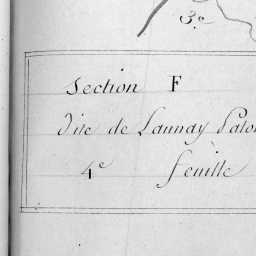 3.e
Section F
Dite de Launay
4e feuille